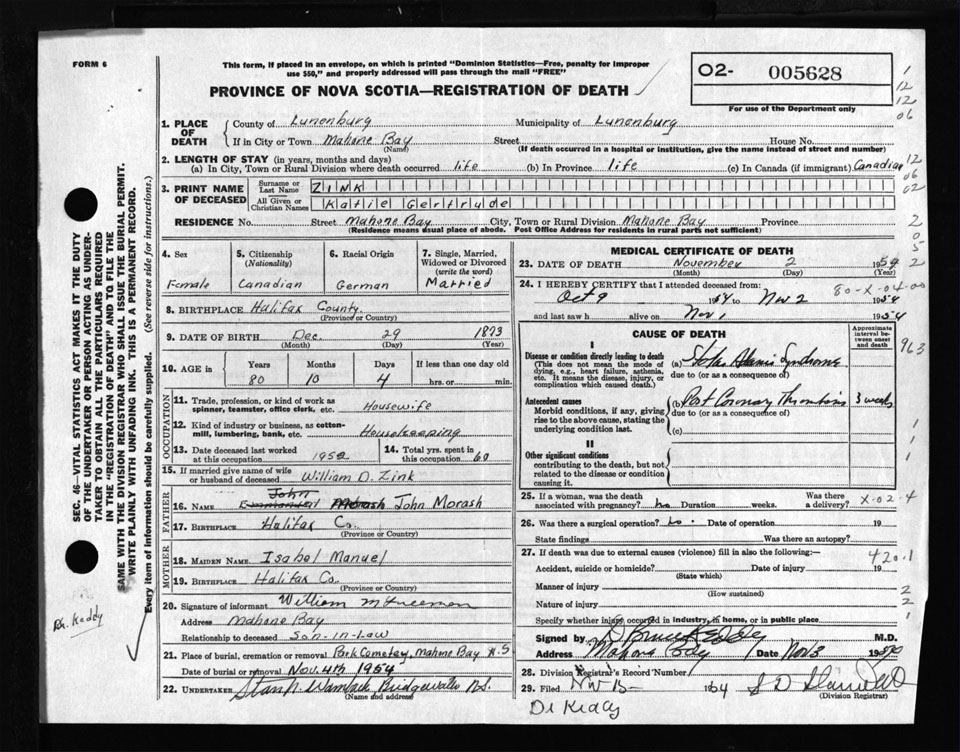 FORM 6
This form, if placed in an envelope, on which is printed "Dominion Statistics—Free, penalty for improper
use $50," and properly addressed will pass through the mail "FREE"
PROVINCE OF NOVA SCOTIA—REGISTRATION OF DEATH
02- 005628
For use of the Department only
1
12
12
06
1. PLACE OF DEATH
County of Lunenburg Municipality of Lunenburg
If in City or Town Mahone Bay Street House No.
(Name) (If death occurred in a hospital or institution, give the name instead of street and number)
2. LENGTH OF STAY (in years, months and days)
(a) In City, Town or Rural Division where death occurred life (b) In Province life (c) In Canada (if immigrant) Canadian
12
06
02
3. PRINT NAME OF DECEASED
Surname or Last Name ZINK
All Given or Christian Names Katie Gertrude
RESIDENCE No. Street Mahone Bay City, Town or Rural Division Mahone Bay Province
(Residence means usual place of abode. Post Office Address for residents in rural parts not sufficient)
2
0
5
2
4. Sex Female
5. Citizenship (Nationality) Canadian
6. Racial Origin German
7. Single, Married, Widowed or Divorced (write the word) Married
8. BIRTHPLACE Halifax County
(Province or Country)
9. DATE OF BIRTH Dec. 29 1873
(Month) (Day) (Year)
10. AGE in Years Months Days If less than one day old
80 10 4 hrs. or min.
OCCUPATION
11. Trade, profession or kind of work as
spinner, teamster, office clerk, etc. Housewife
12. Kind of industry or business, as cotton-
mill, lumbering, bank, etc. Housekeeping
13. Date deceased last worked at this occupation 1952
14. Total yrs. spent in this occupation 60
15. If married give name of wife
or husband of deceased William D. Zink
FATHER
John
16. NAME Morash John Morash
17. BIRTHPLACE Halifax Co.
(Province or Country)
MOTHER
18. MAIDEN NAME Isabel Manuel
19. BIRTHPLACE Halifax Co.
(Province or Country)
20. Signature of informant William M Freeman
Address Mahone Bay
Relationship to deceased Son-in-Law
21. Place of burial, cremation or removal Park Cemetey, Mahone Bay N.S
Date of burial or removal Nov. 4th 1954
22. UNDERTAKER Bridgewater N.S.
(Name and address)
MEDICAL CERTIFICATE OF DEATH
23. DATE OF DEATH November 2 1954
(Month) (Day) (Year)
24. I HEREBY CERTIFY that I attended deceased from:
80-X-04-00
Oct 9 1954 to Nov 2 1954
and last saw h alive on Nov 1 1954
CAUSE OF DEATH
Approximate interval between onset and death
963
I
Disease or condition directly leading to death
(This does not mean the mode of
dying, e.g., heart failure, asthenia,
etc. It means the disease, injury, or
complication which caused death.)
(a) Stokes Adams Syndrome
due to (or as a consequence of)
Antecedent causes
Morbid conditions, if any, giving
rise to the above cause, stating the
underlying condition last.
(b) Coronary Thrombosis 3 weeks
due to (or as a consequence of)
(c)
1
1
II
Other significant conditions
contributing to the death, but not
related to the disease or condition
causing it.
25. If a woman, was the death
associated with pregnancy? no Duration weeks. Was there a delivery? X-02-4
26. Was there a surgical operation? no. Date of operation 19
State findings Was there an autopsy?
27. If death was due to external causes (violence) fill in also the following:—
420.1
Accident, suicide or homicide? Date of injury 19
(State which)
Manner of injury
(How sustained)
2
Nature of injury
2
Specify whether injury occurred in industry, in home, or in public place
1
Signed by D Bruce Keddy M.D.
Address Mahone Bay Date Nov 3 1954
28. Division Registrar's Record Number
29. Filed Nov 1954
(Division Registrar)
Dr Keddy
SEC. 46—VITAL STATISTICS ACT MAKES IT THE DUTY
OF THE UNDERTAKER OR PERSON ACTING AS UNDER-
TAKER TO OBTAIN ALL THE PARTICULARS REQUIRED
IN THE "REGISTRATION OF DEATH" AND TO FILE THE
SAME WITH THE DIVISION REGISTRAR WHO SHALL ISSUE THE BURIAL PERMIT.
WRITE PLAINLY WITH UNFADING INK. THIS IS A PERMANENT RECORD.
Every item of information should be carefully supplied. (See reverse side for instructions.)
Dr. Keddy